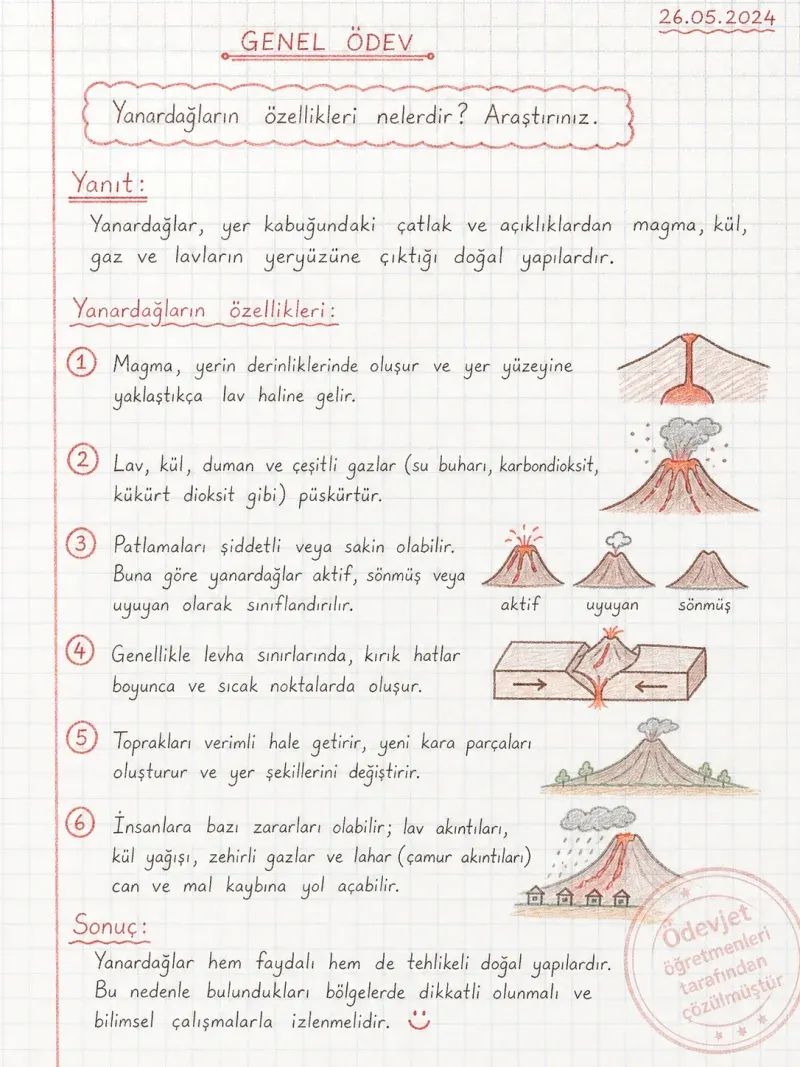 26.05.2024
GENEL ÖDEV
Yanardağların özellikleri nelerdir? Araştırınız.
Yanıt:
Yanardağlar, yer kabuğundaki çatlak ve açıklıklardan magma, kül,
gaz ve lavların yeryüzüne çıktığı doğal yapılardır.
Yanardağların özellikleri:
1 Magma, yerin derinliklerinde oluşur ve yer yüzeyine
yaklaştıkça lav haline gelir.
2 Lav, kül, duman ve çeşitli gazlar (su buharı, karbondioksit,
kükürt dioksit gibi) püskürtür.
3 Patlamaları şiddetli veya sakin olabilir.
Buna göre yanardağlar aktif, sönmüş veya
uyuyan olarak sınıflandırılır.
aktif uyuyan sönmüş
4 Genellikle levha sınırlarında, kırık hatlar
boyunca ve sıcak noktalarda oluşur.
5 Toprakları verimli hale getirir, yeni kara parçaları
oluşturur ve yer şekillerini değiştirir.
6 İnsanlara bazı zararları olabilir; lav akıntıları,
kül yağışı, zehirli gazlar ve lahar (çamur akıntıları)
can ve mal kaybına yol açabilir.
Sonuç:
Yanardağlar hem faydalı hem de tehlikeli doğal yapılardır.
Bu nedenle bulundukları bölgelerde dikkatli olunmalı ve
bilimsel çalışmalarla izlenmelidir.
Ödevjet
öğretmenleri
tarafından
çözülmüştür